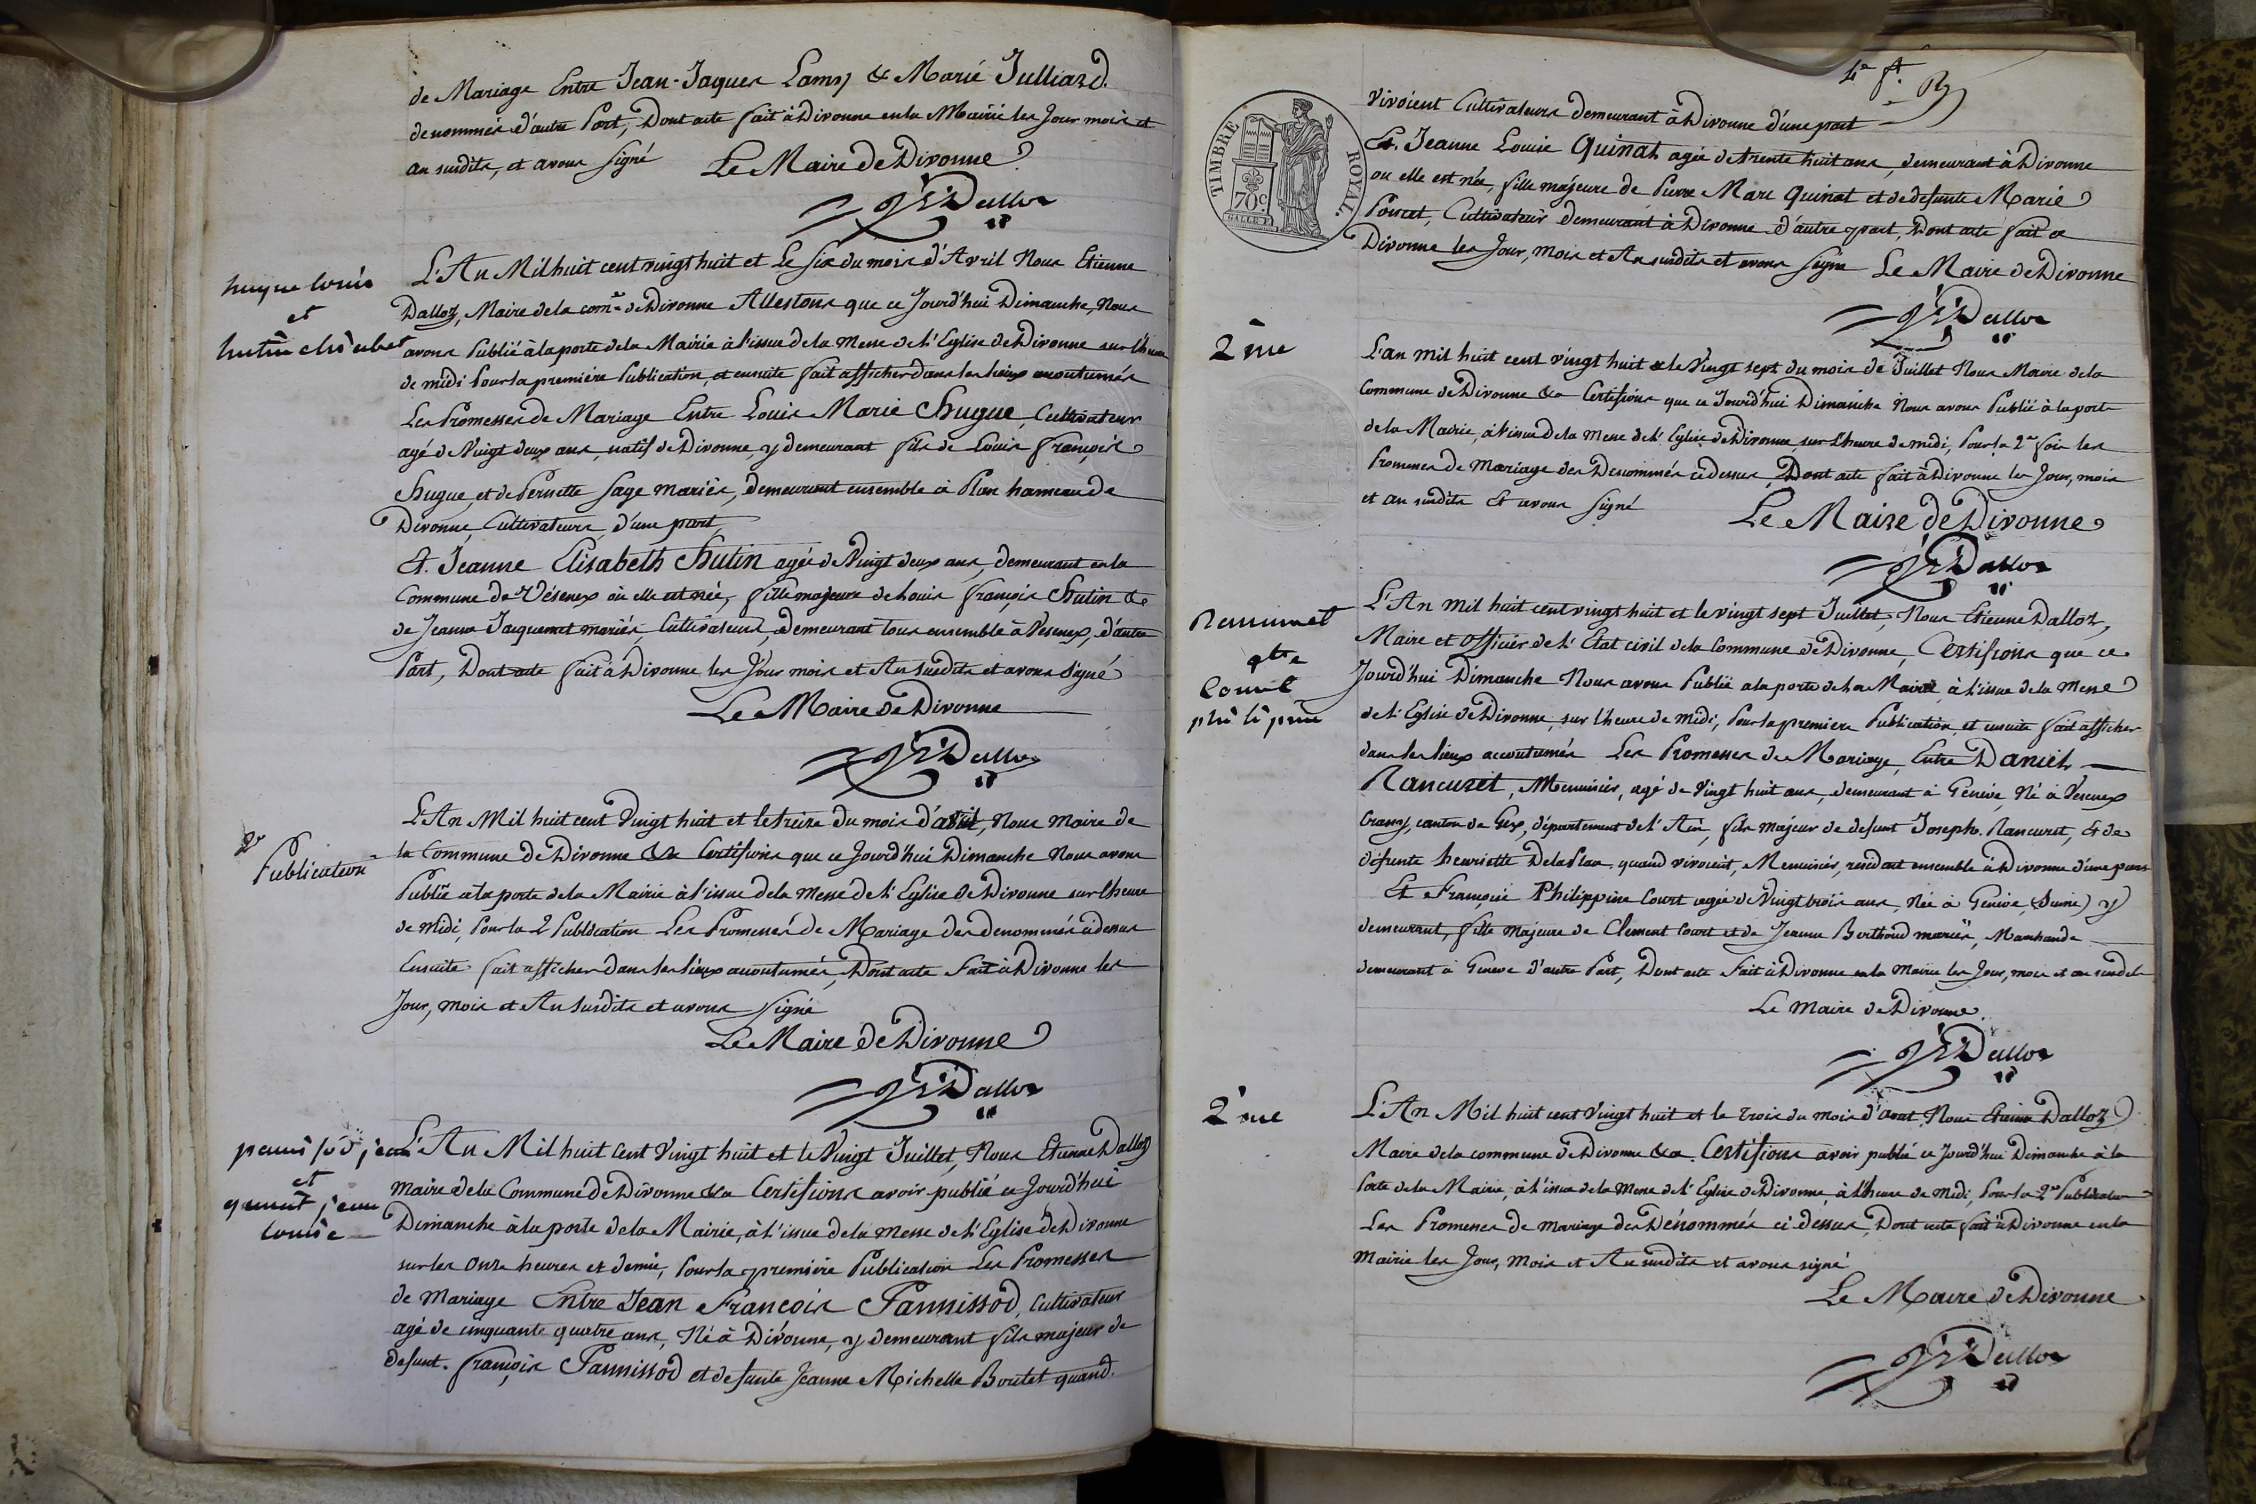 de Mariage Entre Jean-Jaques Lamy & Marie Julliard.
denommés d'autre Part, Dont acte fait à Divonne en la Mairie les Jour mois et
an susdits, et avons signé Le Maire de Divonne
Dalloz
hugue louis
et
hutin elisabet
L'An Mil huit cent vingt huit et Le six du mois d'Avril Nous Etienne
Dalloz, Maire de la com.e de Divonne Attestons que ce Jourd'hui Dimanche, Nous
avons Publié à la porte de la Mairie à l'issue de la Messe de l'Eglise de Divonne sur l'heure
de midi Pour la première Publication, et ensuite fait afficher dans les lieux accoutumés
Les Promesses de Mariage Entre Louis Marie Hugue, Cultivateur
agé de Vingt deux ans, natif de Divonne, y demeurant fils de Louis François
Hugue, et de Pernette Sage mariés, demeurant ensemble à Plan hameau de
Divonne, Cultivateurs, d'une part,
Et. Jeanne Elisabeth Hutin agée de Vingt deux ans, demeurant en la
Commune de Vésenex où elle est née, fille majeure de Louis François Hutin &
de Jeanne Jacquemet mariés, Cultivateurs, demeurant tous ensemble à Vesenex, d'autre
Part, Dont acte fait à Divonne les Jour mois et An susdits et avons Signé
Le Maire de Divonne
Dalloz
2e
Publication
L'An Mil huit cent Vingt huit et le treize du mois d'avril, Nous Maire de
la Commune de Divonne &a Certifions que ce Jourd'hui Dimanche Nous avons
Publié à la porte de la Mairie à l'issue de la Messe de l'Eglise de Divonne sur l'heure
de midi, Pour la 2 Publication Les Promesses de Mariage des denommés cidessus
Ensuite fait afficher dans les lieux accoutumés, Dont acte Fait à Divonne les
Jour, mois et An susdits et avons Signé
Le Maire de Divonne
Dalloz
panissod jean
et
quinat jeanne
louise
L'An Mil huit Cent Vingt huit et le Vingt Juillet, Nous Etienne Dalloz
Maire de la Commune de Divonne &a Certifions avoir publié ce Jourd'hui
Dimanche à la porte de la Mairie, à l'issue de la Messe de l'Eglise de Divonne
sur les onze heures et demie, Pour la première Publication Les Promesses
de Mariage Entre Jean François Pannissod, Cultivateur
agé de cinquante quatre ans, Né à Divonne, y demeurant fils majeur de
defunt François Pannissod et defunte Jeanne Michelle Boutet quand
4e f.t
vivoient Cultivateurs demeurant à Divonne d'une part
Et. Jeanne Louise Quinat agée de trente huit ans, demeurant à Divonne
ou elle est née, fille majeure de Pierre Marc Quinat et de defunte Marie
Poncet, Cultivateur demeurant à Divonne d'autre part, Dont acte fait à
Divonne les Jour, Mois et An susdits et avons signé Le Maire de Divonne
TIMBRE ROYAL
70c.
Dalloz
2ème
L'an mil huit cent vingt huit & le Vingt sept du mois de Juillet Nous Maire de la
Commune de Divonne &a Certifions que ce Jourd'hui Dimanche Nous avons Publié à la porte
de la Mairie, à l'issue de la Messe de l'Eglise de Divonne, sur l'heure de midi, Pour la 2e fois les
Promesses de Mariage des Denommés cidessus, Dont acte fait à Divonne les Jour, mois
et an susdits Et avons signé Le Maire de Divonne
Dalloz
philipine
L'An mil huit cent vingt huit et le vingt sept Juillet, Nous Etienne Dalloz,
Maire et Officier de l'Etat civil de la Commune de Divonne, Certifions que ce
Jourd'hui Dimanche Nous avons Publié à la porte de la Mairie, à l'issue de la Messe
de l'Eglise de Divonne, sur l'heure de midi, Pour la première Publication, et ensuite fait afficher
dans les lieux accoutumés Les Promesses de Mariage, Entre Daniel
Rancuret, Menuisier, agé de Vingt huit ans, demeurant à Genève Né à Vesenex
Crassy, canton de Gex, département de l'Ain, fils majeur de defunt Joseph Rancuret, Et de
défunte henriette Delaplan quand vivoient, Menuisier, residant ensemble à Divonne d'une part
Et Françoise Philippine Court agée de Vingt trois ans, Née à Genève, (Suisse) y
demeurant, fille Majeure de Clement Court et de Jeanne Berthoud mariés, Marchands
demeurant à Geneve d'autre Part, Dont acte Fait à Divonne en la Mairie les Jour, mois et an susdits
Le Maire de Divonne
Dalloz
2ème
L'An Mil huit cent Vingt huit et le trois du mois d'aoat Nous Etienne Dalloz
Maire de la commune de Divonne &a Certifions avoir publié ce Jourd'hui Dimanche à la
Porte de la Mairie, à l'issue de la Messe de l'Eglise de Divonne, à l'heure de Midi, Pour la 2e Publication
Les Promesses de Mariage des Dénommés ci dessus, Dont acte fait à Divonne en la
Mairie les Jour, Mois et An susdits et avons signé
Le Maire de Divonne
Dalloz